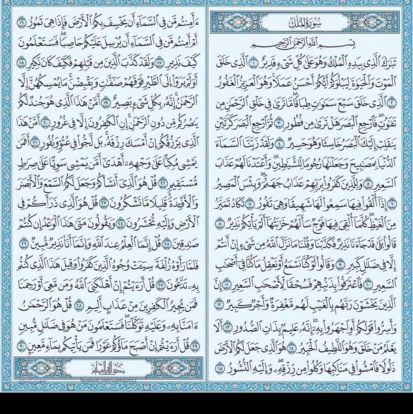 سُورَةُ المُلْكِ
بِسْمِ اللَّهِ الرَّحْمَٰنِ الرَّحِيمِ
تَبَٰرَكَ الَّذِي بِيَدِهِ الْمُلْكُ وَهُوَ عَلَىٰ كُلِّ شَيْءٍ قَدِيرٌ ١ الَّذِي خَلَقَ
الْمَوْتَ وَالْحَيَوٰةَ لِيَبْلُوَكُمْ أَيُّكُمْ أَحْسَنُ عَمَلًا وَهُوَ الْعَزِيزُ الْغَفُورُ
٢ الَّذِي خَلَقَ سَبْعَ سَمَٰوَٰتٍ طِبَاقًا مَّا تَرَىٰ فِي خَلْقِ الرَّحْمَٰنِ مِن
تَفَٰوُتٍ فَارْجِعِ الْبَصَرَ هَلْ تَرَىٰ مِن فُطُورٍ ٣ ثُمَّ ارْجِعِ الْبَصَرَ كَرَّتَيْنِ
يَنقَلِبْ إِلَيْكَ الْبَصَرُ خَاسِئًا وَهُوَ حَسِيرٌ ٤ وَلَقَدْ زَيَّنَّا السَّمَاءَ
الدُّنْيَا بِمَصَٰبِيحَ وَجَعَلْنَٰهَا رُجُومًا لِّلشَّيَٰطِينِ وَأَعْتَدْنَا لَهُمْ عَذَابَ
السَّعِيرِ ٥ وَلِلَّذِينَ كَفَرُوا بِرَبِّهِمْ عَذَابُ جَهَنَّمَ وَبِئْسَ الْمَصِيرُ
٦ إِذَا أُلْقُوا فِيهَا سَمِعُوا لَهَا شَهِيقًا وَهِيَ تَفُورُ ٧ تَكَادُ تَمَيَّزُ
مِنَ الْغَيْظِ كُلَّمَا أُلْقِيَ فِيهَا فَوْجٌ سَأَلَهُمْ خَزَنَتُهَا أَلَمْ يَأْتِكُمْ نَذِيرٌ ٨
قَالُوا بَلَىٰ قَدْ جَاءَنَا نَذِيرٌ فَكَذَّبْنَا وَقُلْنَا مَا نَزَّلَ اللَّهُ مِن شَيْءٍ إِنْ أَنتُمْ
إِلَّا فِي ضَلَٰلٍ كَبِيرٍ ٩ وَقَالُوا لَوْ كُنَّا نَسْمَعُ أَوْ نَعْقِلُ مَا كُنَّا فِي أَصْحَٰبِ
السَّعِيرِ ١٠ فَاعْتَرَفُوا بِذَنبِهِمْ فَسُحْقًا لِّأَصْحَٰبِ السَّعِيرِ ١١ إِنَّ
الَّذِينَ يَخْشَوْنَ رَبَّهُم بِالْغَيْبِ لَهُم مَّغْفِرَةٌ وَأَجْرٌ كَبِيرٌ ١٢
وَأَسِرُّوا قَوْلَكُمْ أَوِ اجْهَرُوا بِهِ إِنَّهُ عَلِيمٌ بِذَاتِ الصُّدُورِ ١٣ أَلَا
يَعْلَمُ مَنْ خَلَقَ وَهُوَ اللَّطِيفُ الْخَبِيرُ ١٤ هُوَ الَّذِي جَعَلَ لَكُمُ الْأَرْضَ
ذَلُولًا فَامْشُوا فِي مَنَاكِبِهَا وَكُلُوا مِن رِّزْقِهِ وَإِلَيْهِ النُّشُورُ ١٥
ءَأَمِنتُم مَّن فِي السَّمَاءِ أَن يَخْسِفَ بِكُمُ الْأَرْضَ فَإِذَا هِيَ تَمُورُ ١٦
أَمْ أَمِنتُم مَّن فِي السَّمَاءِ أَن يُرْسِلَ عَلَيْكُمْ حَاصِبًا فَسَتَعْلَمُونَ
كَيْفَ نَذِيرِ ١٧ وَلَقَدْ كَذَّبَ الَّذِينَ مِن قَبْلِهِمْ فَكَيْفَ كَانَ نَكِيرِ ١٨
أَوَلَمْ يَرَوْا إِلَى الطَّيْرِ فَوْقَهُمْ صَٰفَّٰتٍ وَيَقْبِضْنَ مَا يُمْسِكُهُنَّ إِلَّا
الرَّحْمَٰنُ إِنَّهُ بِكُلِّ شَيْءٍ بَصِيرٌ ١٩ أَمَّنْ هَٰذَا الَّذِي هُوَ جُندٌ لَّكُمْ
يَنصُرُكُم مِّن دُونِ الرَّحْمَٰنِ إِنِ الْكَٰفِرُونَ إِلَّا فِي غُرُورٍ ٢٠ أَمَّنْ هَٰذَا
الَّذِي يَرْزُقُكُمْ إِنْ أَمْسَكَ رِزْقَهُ بَل لَّجُّوا فِي عُتُوٍّ وَنُفُورٍ ٢١ أَفَمَن
يَمْشِي مُكِبًّا عَلَىٰ وَجْهِهِ أَهْدَىٰ أَمَّن يَمْشِي سَوِيًّا عَلَىٰ صِرَٰطٍ
مُّسْتَقِيمٍ ٢٢ قُلْ هُوَ الَّذِي أَنشَأَكُمْ وَجَعَلَ لَكُمُ السَّمْعَ وَالْأَبْصَٰرَ
وَالْأَفْئِدَةَ قَلِيلًا مَّا تَشْكُرُونَ ٢٣ قُلْ هُوَ الَّذِي ذَرَأَكُمْ فِي
الْأَرْضِ وَإِلَيْهِ تُحْشَرُونَ ٢٤ وَيَقُولُونَ مَتَىٰ هَٰذَا الْوَعْدُ إِن كُنتُمْ
صَٰدِقِينَ ٢٥ قُلْ إِنَّمَا الْعِلْمُ عِندَ اللَّهِ وَإِنَّمَا أَنَا نَذِيرٌ مُّبِينٌ ٢٦
فَلَمَّا رَأَوْهُ زُلْفَةً سِيئَتْ وُجُوهُ الَّذِينَ كَفَرُوا وَقِيلَ هَٰذَا الَّذِي كُنتُم
بِهِ تَدَّعُونَ ٢٧ قُلْ أَرَءَيْتُمْ إِنْ أَهْلَكَنِيَ اللَّهُ وَمَن مَّعِيَ أَوْ رَحِمَنَا
فَمَن يُجِيرُ الْكَٰفِرِينَ مِنْ عَذَابٍ أَلِيمٍ ٢٨ قُلْ هُوَ الرَّحْمَٰنُ
ءَامَنَّا بِهِ وَعَلَيْهِ تَوَكَّلْنَا فَسَتَعْلَمُونَ مَنْ هُوَ فِي ضَلَٰلٍ مُّبِينٍ
٢٩ قُلْ أَرَءَيْتُمْ إِنْ أَصْبَحَ مَاؤُكُمْ غَوْرًا فَمَن يَأْتِيكُم بِمَاءٍ مَّعِينٍ ٣٠